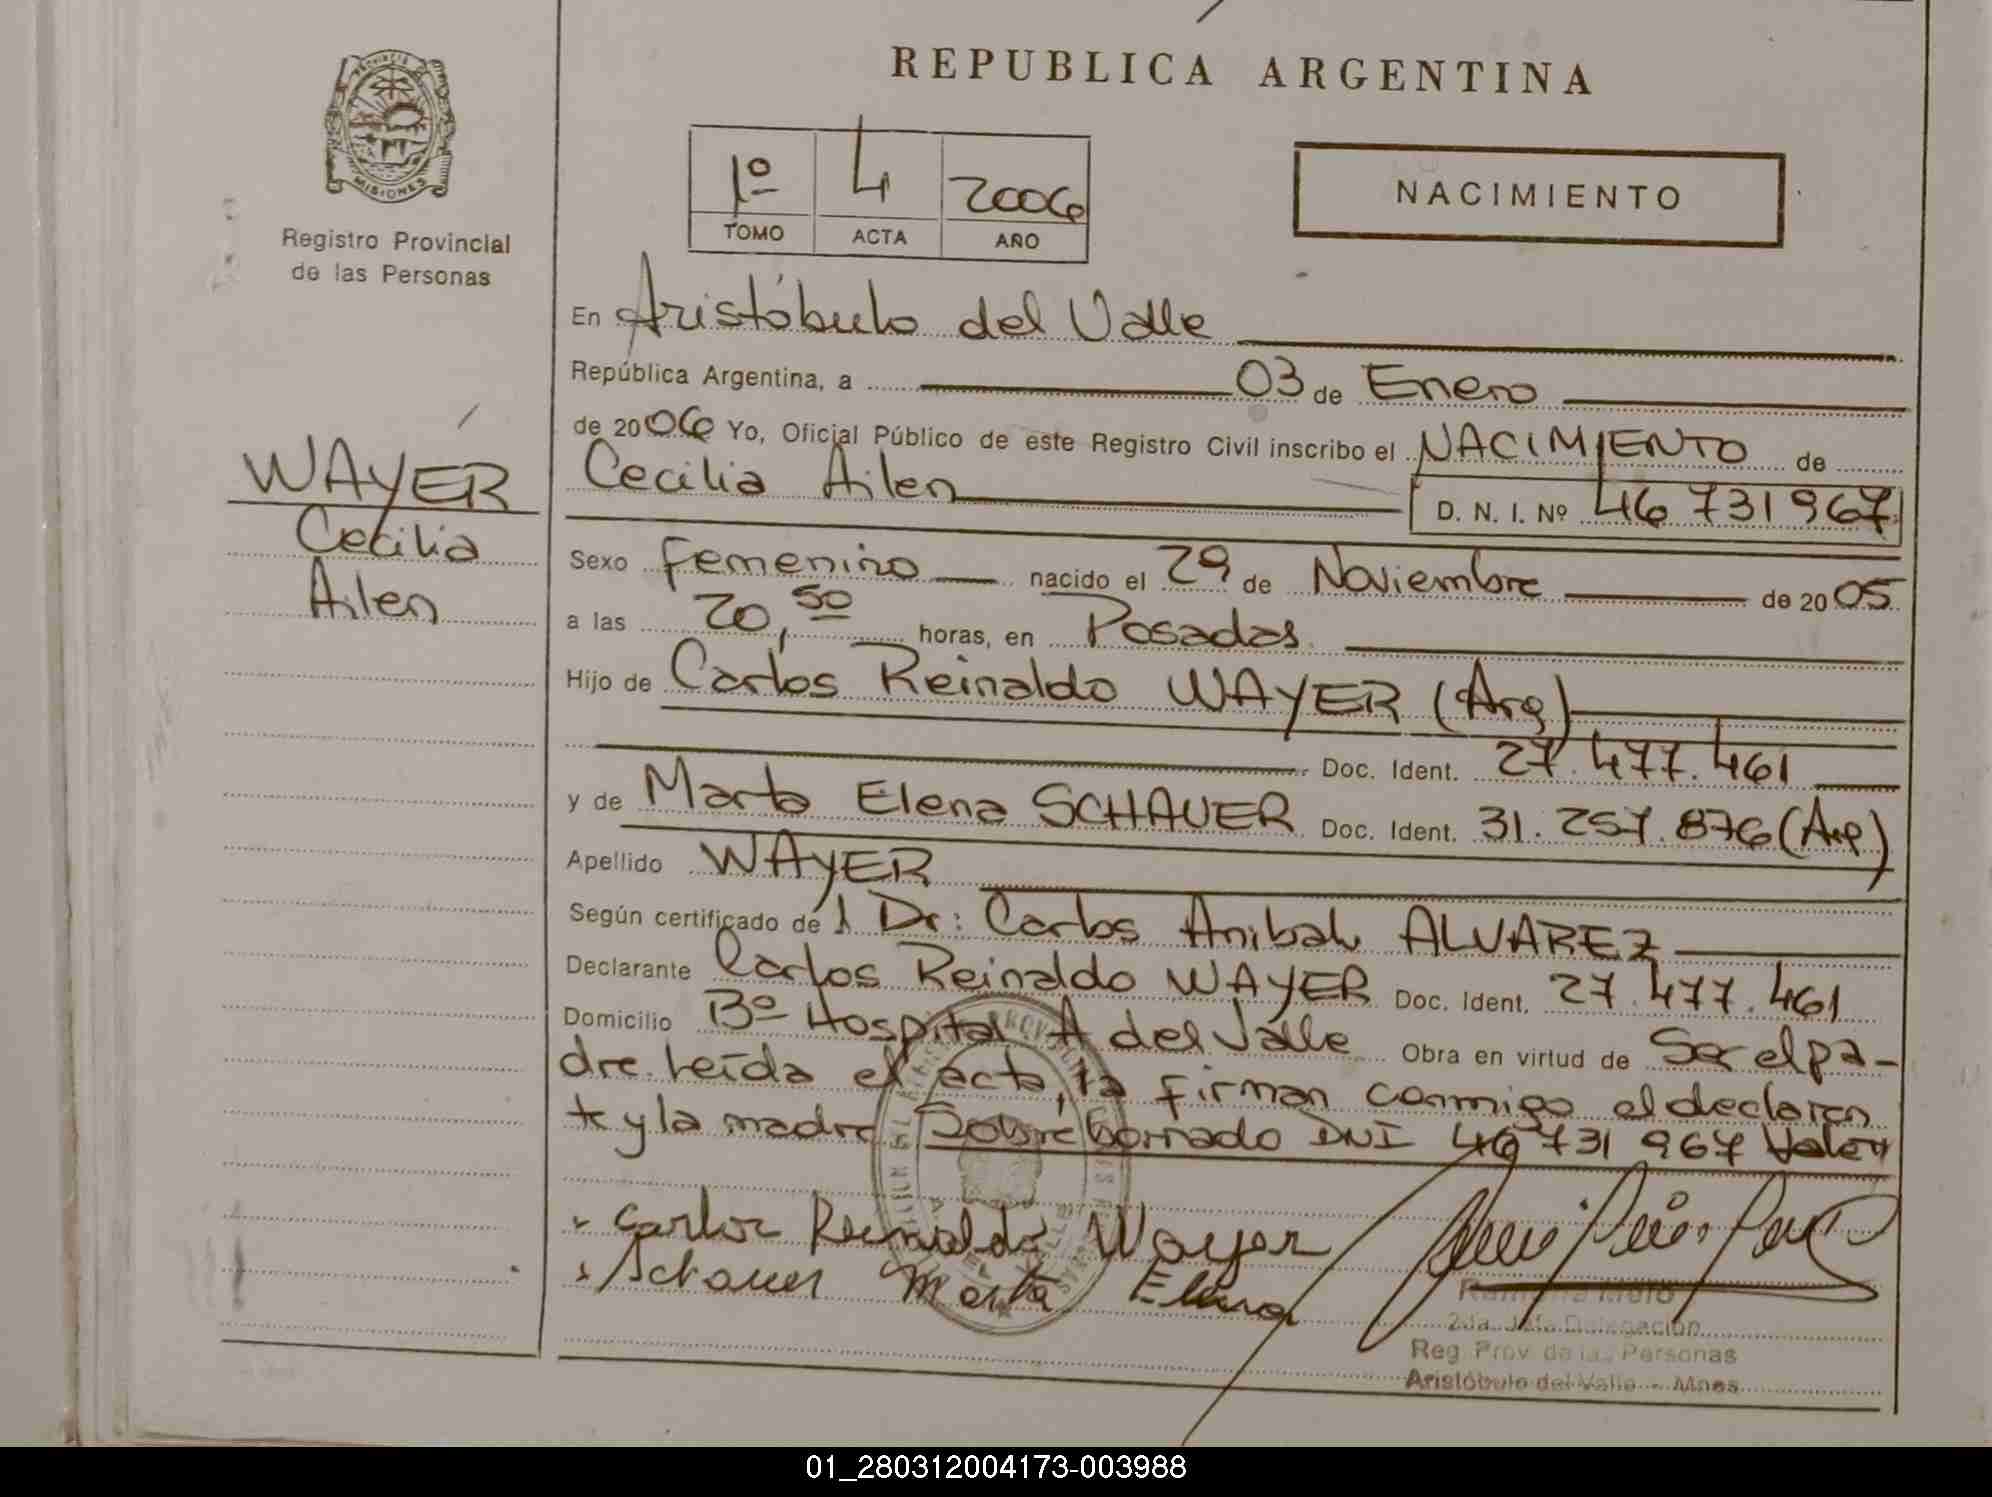 REPUBLICA ARGENTINA
PROVINCIA DE
MISIONES
Registro Provincial
de las Personas
1º 4 2006
TOMO ACTA AÑO
NACIMIENTO
WAYER
Cecilia
Ailen
En Aristóbulo del Valle
República Argentina, a 03 de Enero
de 2006 Yo, Oficial Público de este Registro Civil inscribo el NACIMIENTO de
Cecilia Ailen D. N. I. Nº 46 731 967
Sexo femenino nacido el 29 de Noviembre de 2005
a las 20,50 horas, en Posadas
Hijo de Carlos Reinaldo WAYER (Arg)
Doc. Ident. 27.477.461
y de Marta Elena SCHAUER Doc. Ident. 31.257.876 (Arg)
Apellido WAYER
Según certificado del Dr: Carlos Anibal ALVAREZ
Declarante Carlos Reinaldo WAYER Doc. Ident. 27.477.461
Domicilio Bº Hospital A del Valle Obra en virtud de Ser el pa-
dre. leída el acta, la firman conmigo el declaran
te y la madre Sobreborrado DNI 46 731 967 Vale
Carlos Reinaldo Wayer
Schauer Marta Elena
Ramona Melo
2da. Jefa Delegación
Reg. Prov. de las Personas
Aristóbulo del Valle - Mnes
01_280312004173-003988